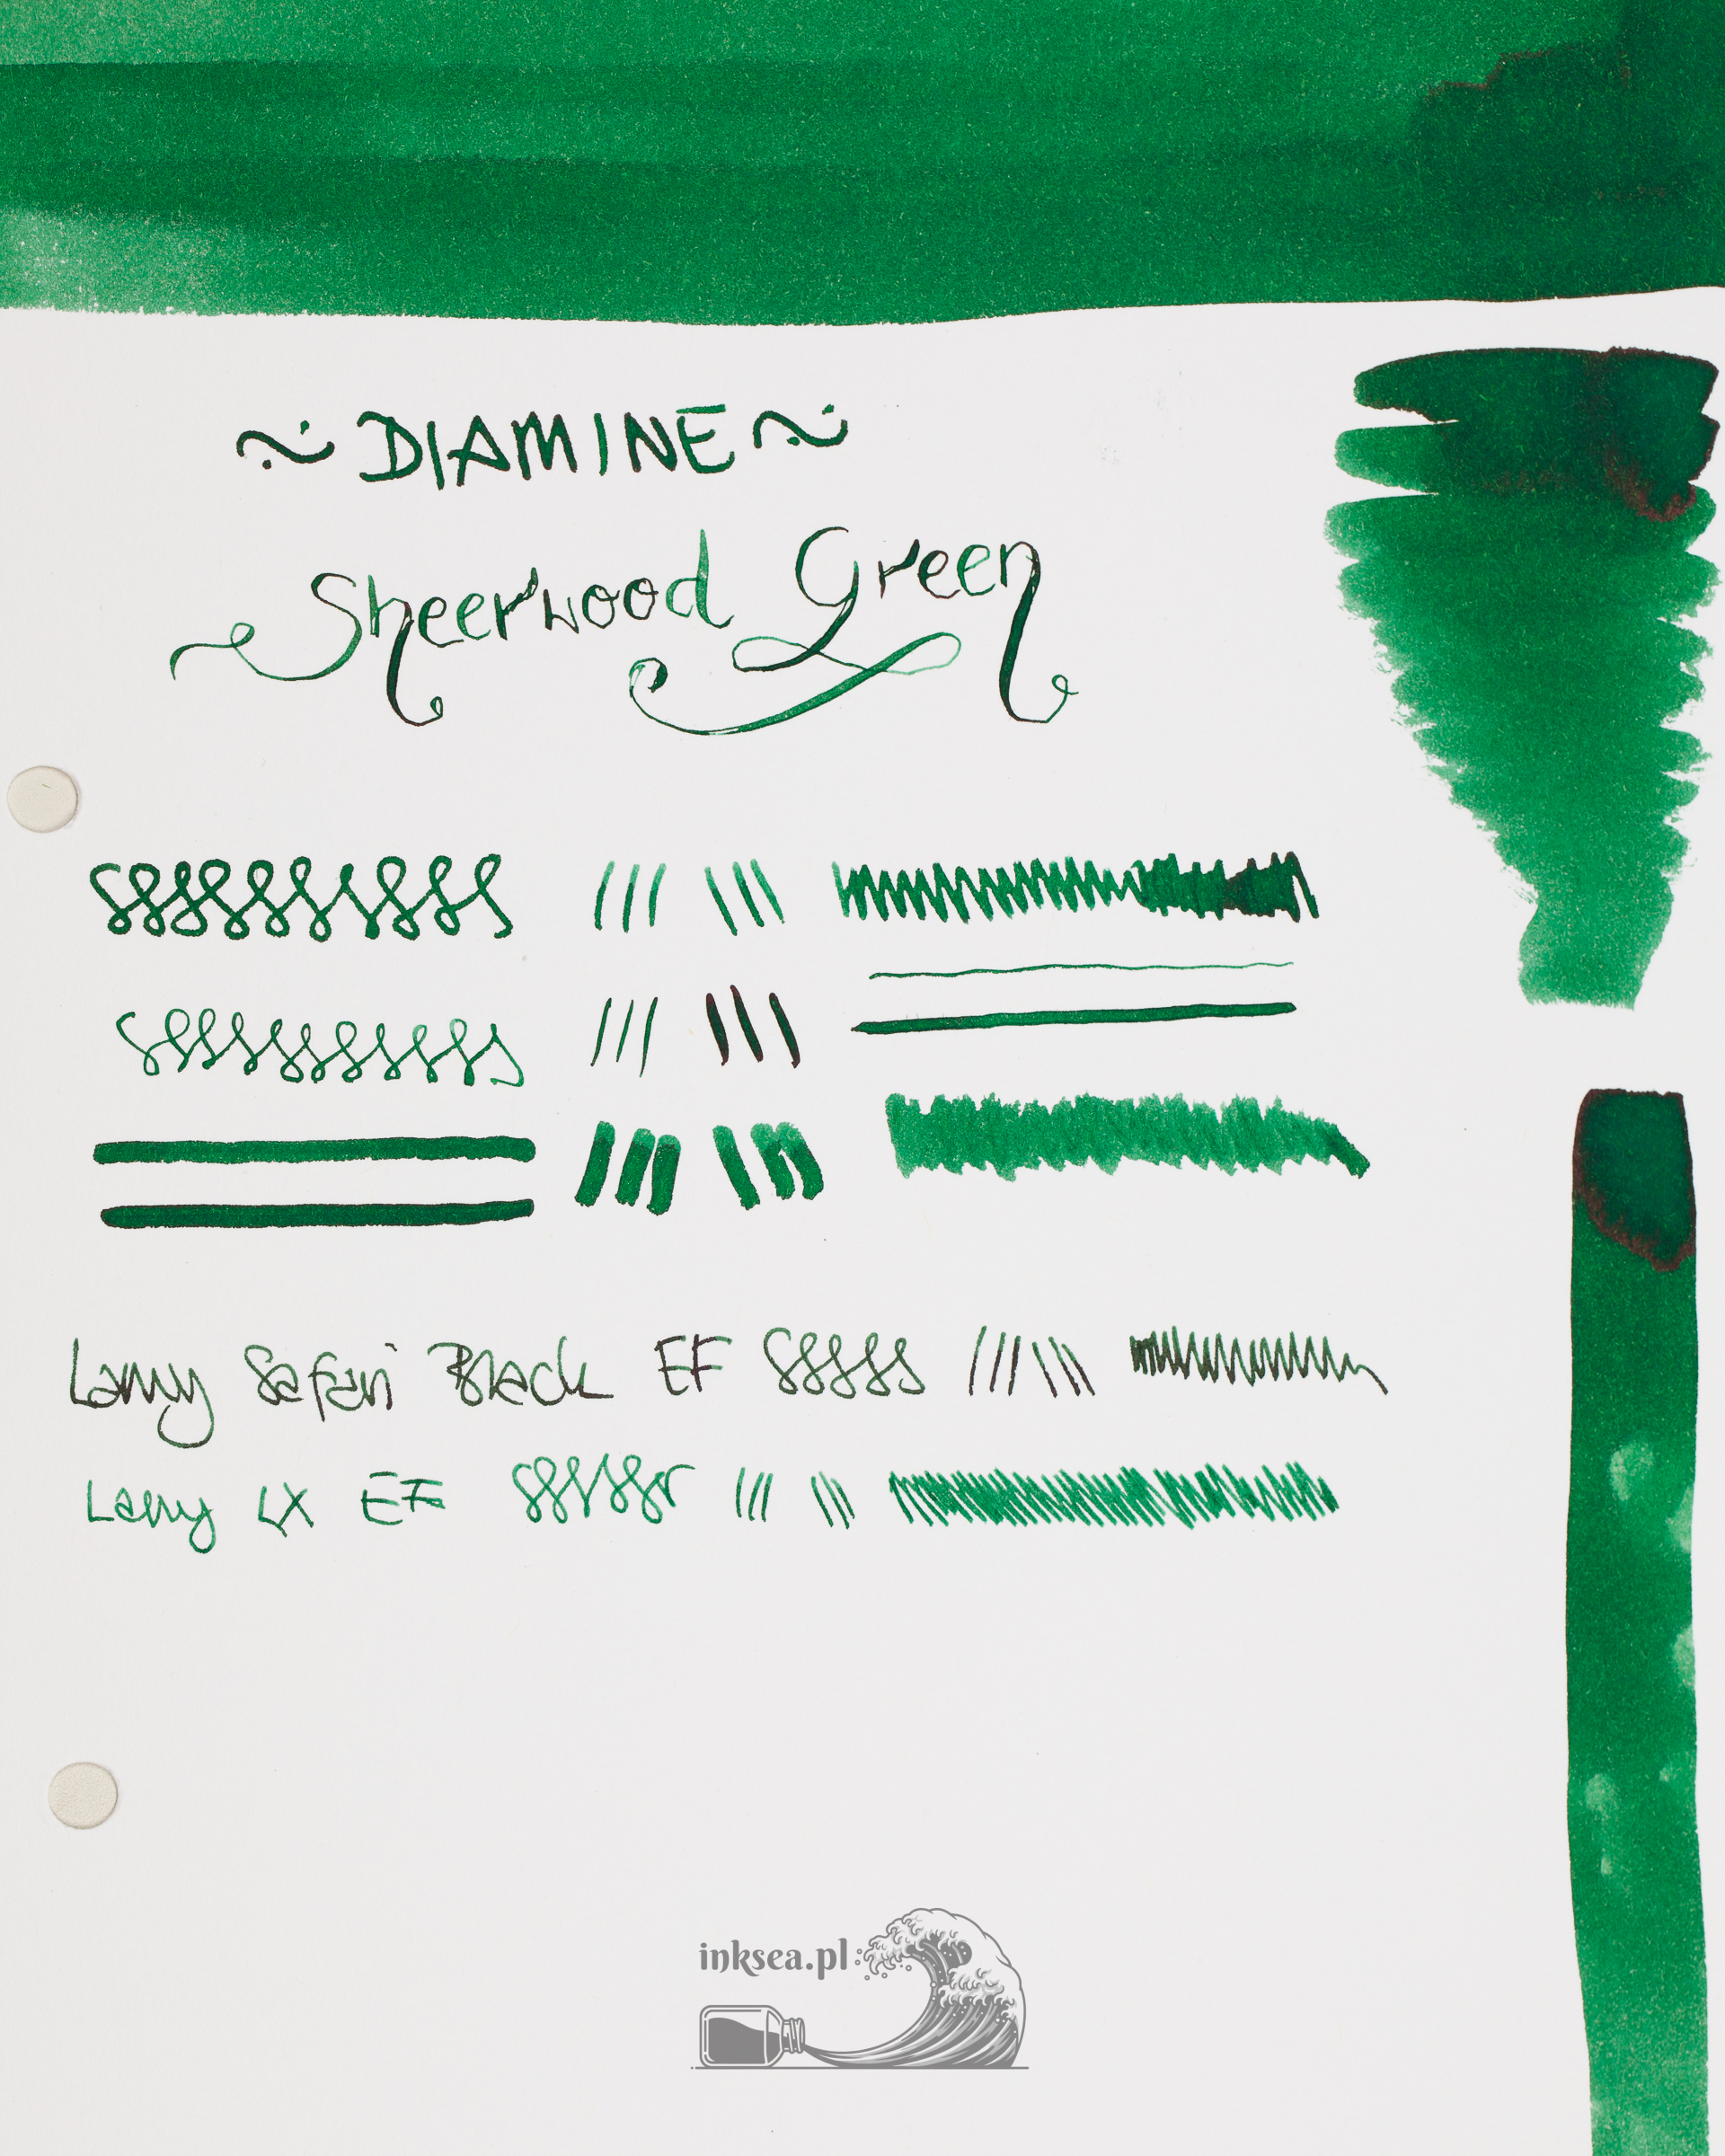 ~ DIAMINE ~
Sheerwood Green
Lamy Safari Black EF
Lamy LX EF
inksea.pl